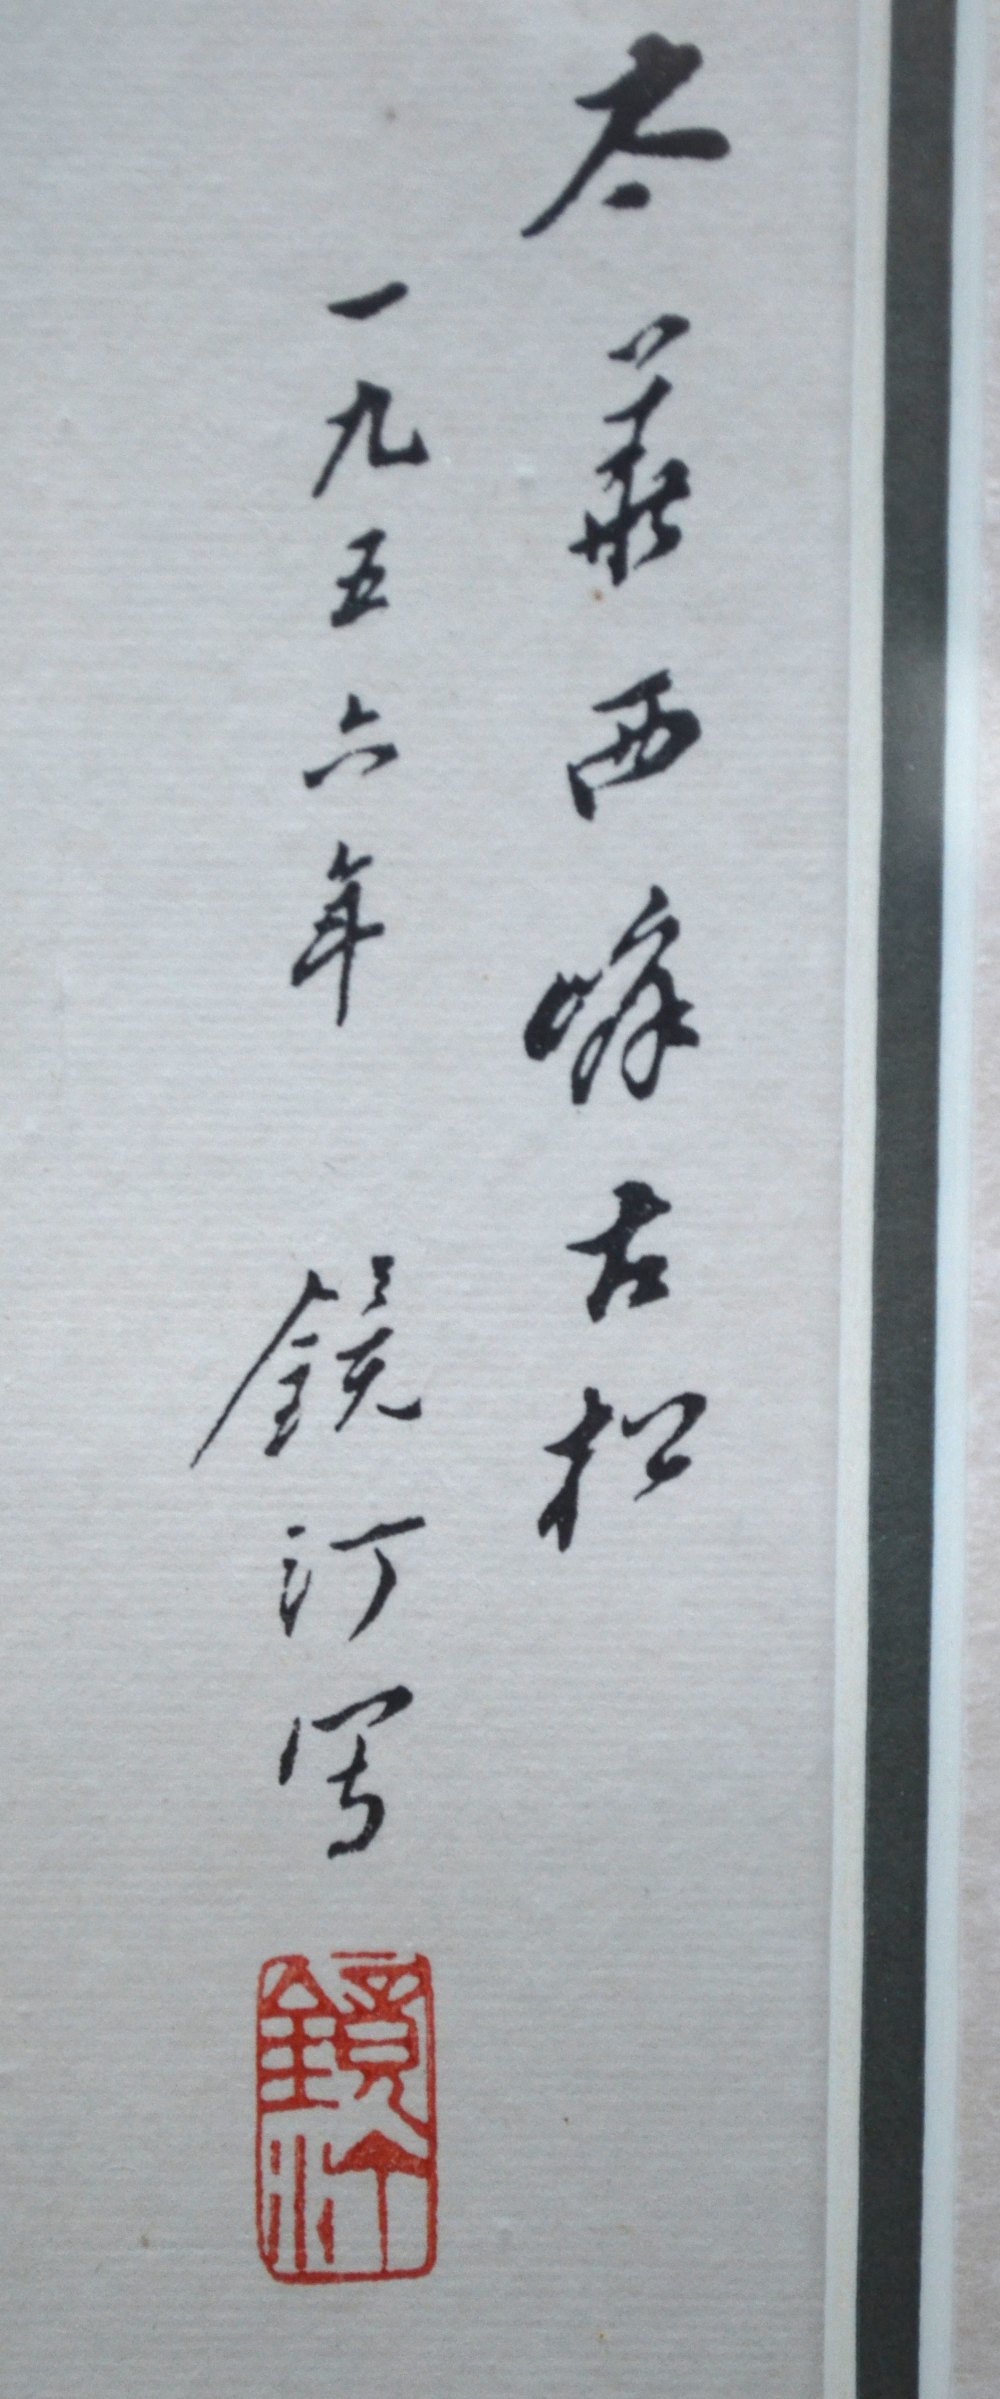 太華西峰古松
一九五六年 鏡汀寫
鏡汀